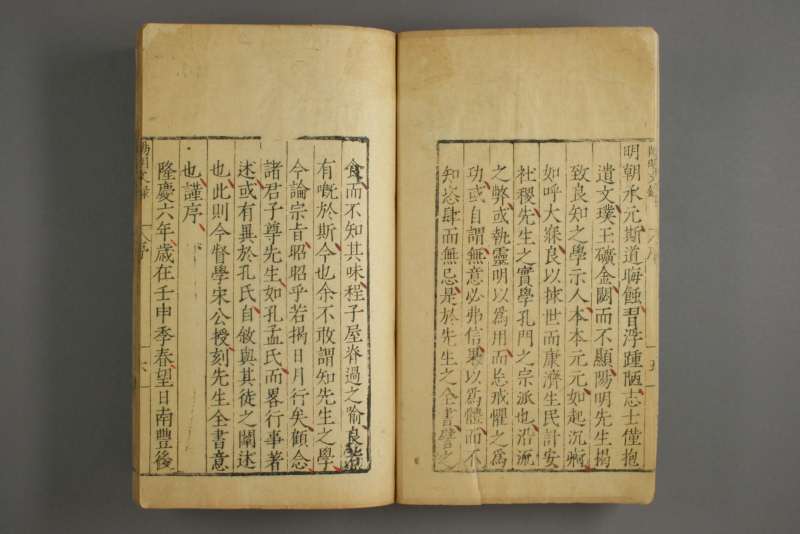 明朝承元斯道晦蝕習浮踵陋志士僅抱
遺文璞玉礦金閟而不顯陽明先生揭
致良知之學示人本本元元如起沉痾
如呼大寐良以拯世而康濟生民計安
社稷先生之實學孔門之宗派也沿流
之弊或執靈明以為用而忘戒懼之為
功或自謂無意必弗信果以為體而不
知恣肆而無忌是於先生之全書譬之
食而不知其味程子屋脊過之喻良
有嘅於斯今也余不敢謂知先生之學
今論宗旨昭昭乎若揭日月行矣顧念
諸君子尊先生如孔孟氏而畧行事著
述或有異於孔氏自敘與其徒之闡述
也此則今督學宋公授刻先生全書意
也謹序
隆慶六年歲在壬申季春望日南豐後